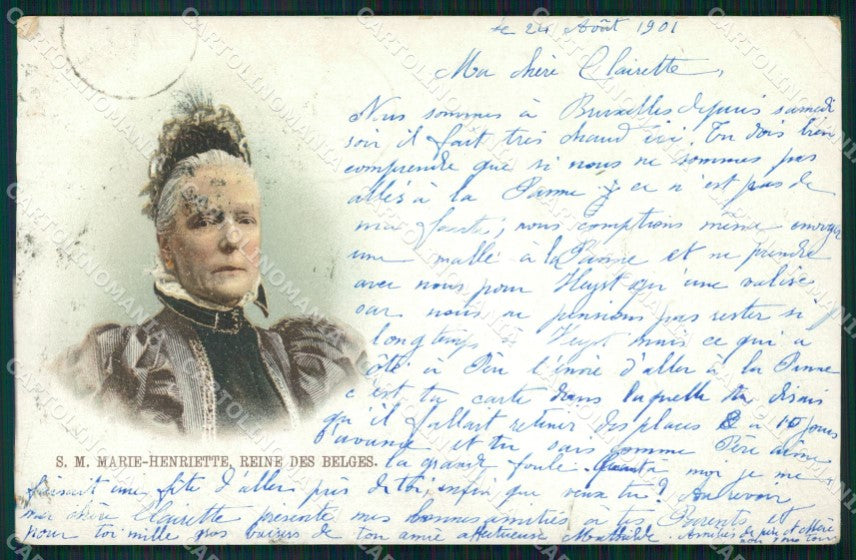 le 24 Août 1901
Ma chère Clairette,
Nous sommes à Bruxelles depuis samedi
soir il fait très chaud ici. Tu dois bien
comprendre que si nous ne sommes pas
allés à la Panne ce n'est pas de
ma faute; nous comptions même envoyer
une malle à la Panne et ne prendre
avec nous pour Heyst qu'une valise
car nous ne pensions pas rester si
longtemps à Heyst mais ce qui a
ôté à Père l'envie d'aller à la Panne
c'est ta carte dans laquelle tu disais
qu'il fallait retenir des places 8 à 10 jours
d'avance et tu sais comme Père aime
S. M. MARIE-HENRIETTE, REINE DES BELGES.
la grande foule. Quant à moi je me
faisait une fête d'aller près de toi, enfin que veux tu? Au revoir
ma chère Clairette présente mes bonnes amitiés à tes Parents et
pour toi mille gros baisers de ton amie affectueuse Mathilde
Amitiés de père et Mère
CARTOLINOMANIA